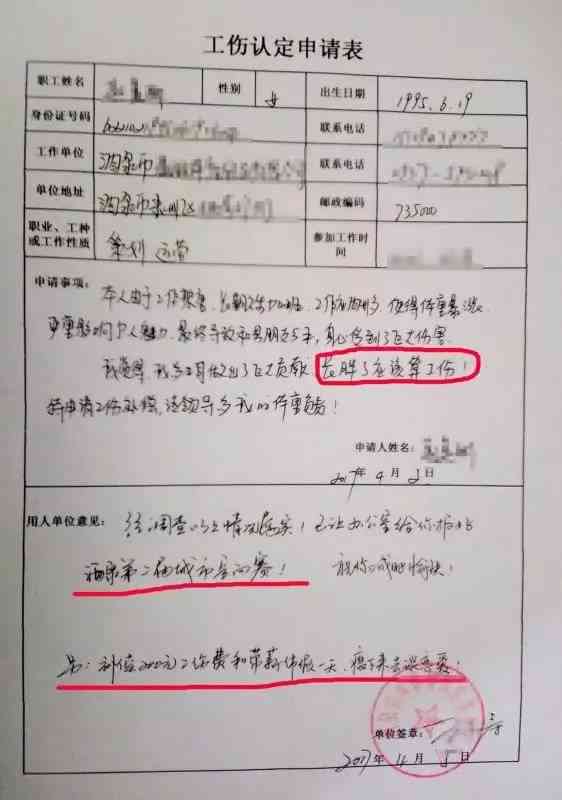 工伤认定申请表
职工姓名 性别 女 出生日期 1995.6.19
身份证号码 联系电话
工作单位 酒泉市 联系电话
单位地址 酒泉市肃州区 邮政编码 735000
职业、工种或工作性质 策划 运营 参加工作时间
申请事项:本人由于工作劳累,长期加班,工作应酬多,使得体重暴涨
严重影响个人魅力,最终导致和男朋友分手,身心受到了巨大伤害.
我觉得,我为公司做出了巨大贡献,长胖了应该算工伤!
特申请工伤补偿,请领导为我的体重负责!
申请人姓名:
2017年4月2日
用人单位意见:经调查以上情况属实!已让办公室给你报名
酒泉第二届城市定向赛! 祝你减肥愉快!
另:补偿200元工伤费和带薪休假一天,瘦下来去谈恋爱!
单位签章:
2017年4月5日